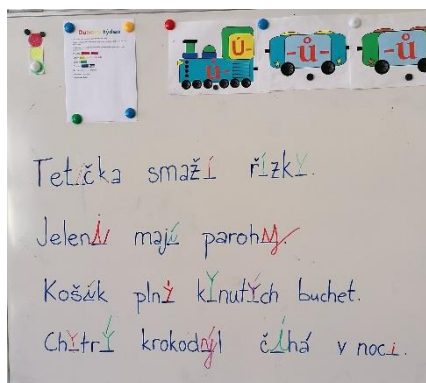 Ú-
Ú-
-ů-
-ů-
Tetička smaží řízky.
Jeleni mají parohy.
Košík plný kynutých buchet.
Chytrý krokodýl číhá v noci.